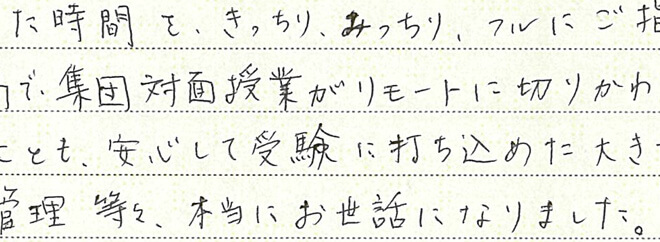 た時間を、きっちり、みっちり、フルにご指
で、集団対面授業がリモートに切りかわ
とも、安心して受験に打ち込めた大き
管理 等々、本当にお世話になりました。